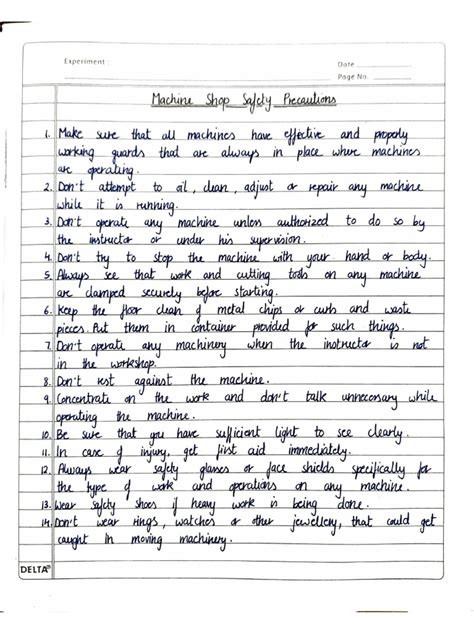 Experiment :
Date
Page No.
Machine Shop Safety Precautions
1. Make sure that all machines have effective and properly
working guards that are always in place where machines
are operating.
2. Don't attempt to oil, clean, adjust or repair any machine
while it is running.
3. Don't operate any machine unless authorized to do so by
the instructor or under his supervision.
4. Don't try to stop the machine with your hand or body.
5. Always see that work and cutting tools on any machine
are clamped securely before starting.
6. Keep the floor clean of metal chips or curls and waste
pieces. Put them in container provided for such things.
7. Don't operate any machinery when the instructor is not
in the workshop.
8. Don't rest against the machine.
9. Concentrate on the work and don't talk unnecessary while
operating the machine.
10. Be sure that you have sufficient light to see clearly.
11. In case of injury, get first aid immediately.
12. Always wear safety glasses or face shields specifically for
the type of work and operations on any machine.
13. Wear safety shoes if heavy work is being done.
14. Don't wear rings, watches or other jewellery, that could get
caught in moving machinery.
DELTA